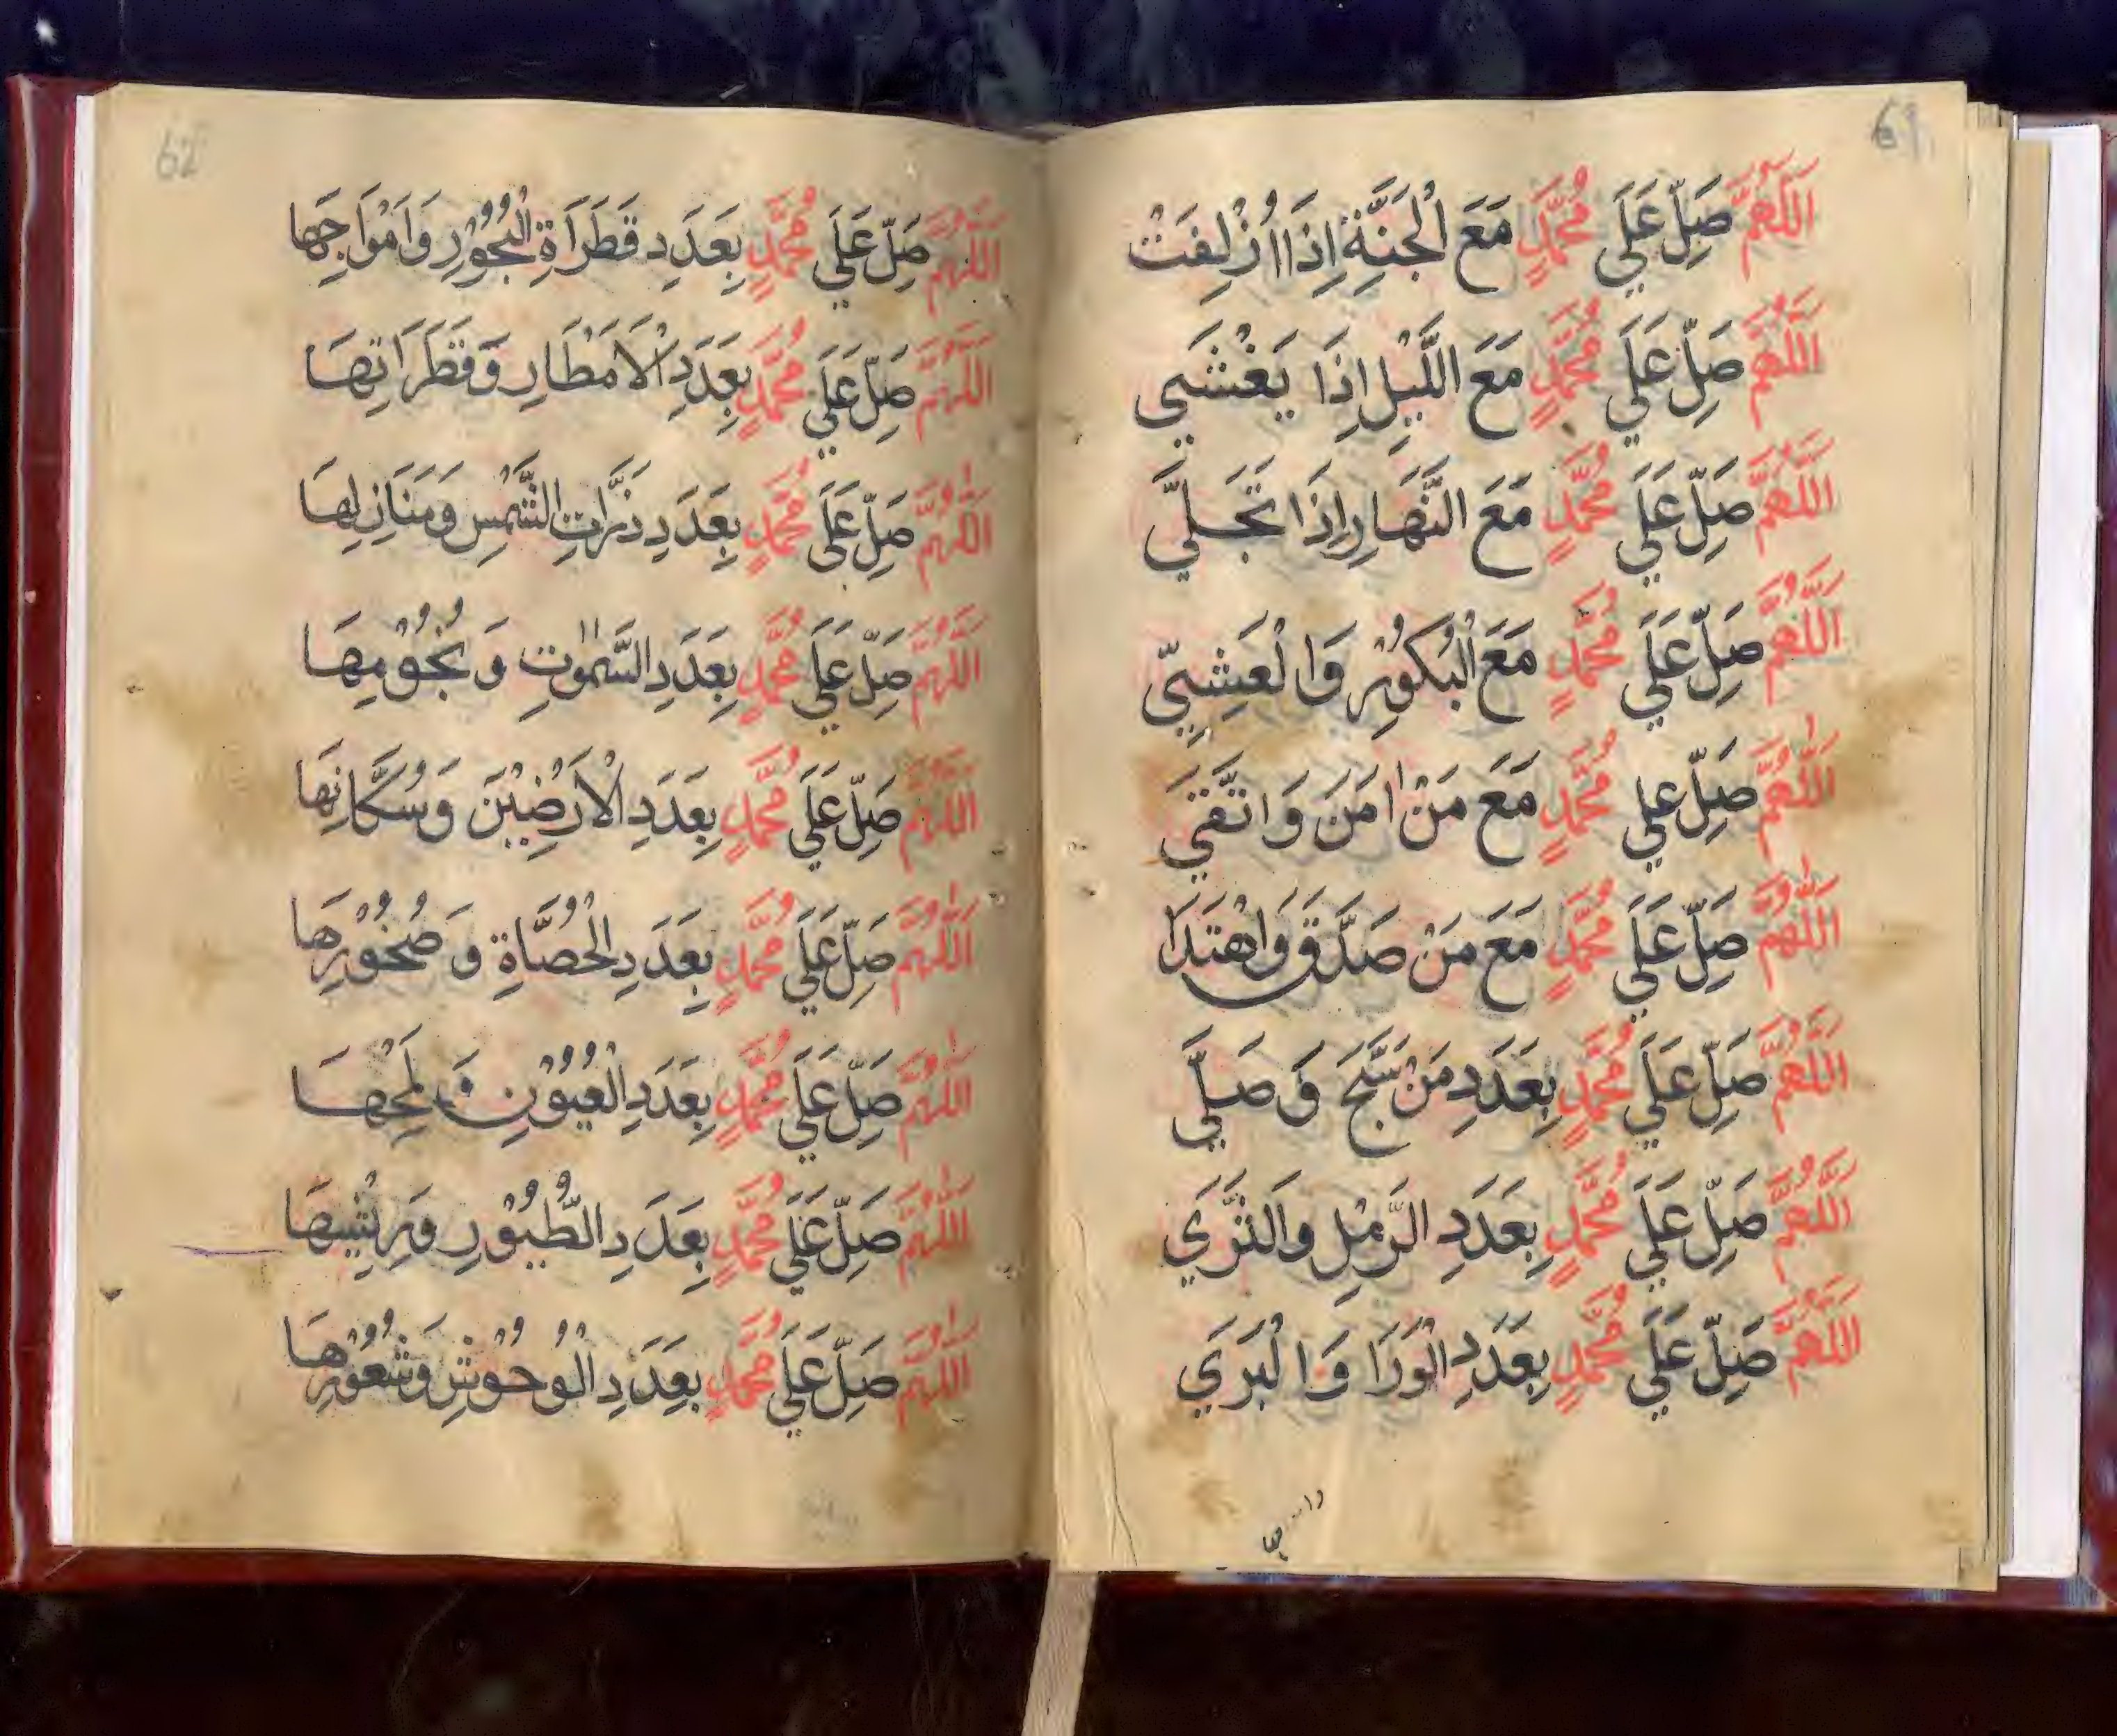 61
اَللّٰهُمَّ صَلِّ عَلَي مُحَمَّدٍ مَعَ الْجَنَّةِ اِذَا اُزْلِفَتْ
اَللّٰهُمَّ صَلِّ عَلَي مُحَمَّدٍ مَعَ اللَّيْلِ اِذَا يَغْشَي
اَللّٰهُمَّ صَلِّ عَلَي مُحَمَّدٍ مَعَ النَّهَارِ اِذَا تَجَلَّي
اَللّٰهُمَّ صَلِّ عَلَي مُحَمَّدٍ مَعَ الْبُكُوْرِ وَالْعَشِيِّ
اَللّٰهُمَّ صَلِّ علي مُحَمَّدٍ مَعَ مَنْ اٰمَنَ وَاتَّقَي
اَللّٰهُمَّ صَلِّ عَلَي مُحَمَّدٍ مَعَ مَنْ صَدَّقَ وَاهْتَدَا
اَللّٰهُمَّ صَلِّ عَلَي مُحَمَّدٍ بِعَدَدِ مَنْ سَبَّحَ وَصَلَّي
اَللّٰهُمَّ صَلِّ عَلَي مُحَمَّدٍ بِعَدَدِ الرَّمْلِ وَالثَّرَي
اَللّٰهُمَّ صَلِّ عَلَي مُحَمَّدٍ بِعَدَدِ الْوَرَا وَالْبَرَي
62
اَللّٰهُمَّ صَلِّ عَلَي مُحَمَّدٍ بِعَدَدِ قَطَرَاةِ الْبُحُوْرِ وَاَمْوَاجِهَا
اَللّٰهُمَّ صَلِّ عَلَي مُحَمَّدٍ بِعَدَدِ الْاَمْطَارِ وَقَطَرَاتِهَا
اَللّٰهُمَّ صَلِّ عَلَي مُحَمَّدٍ بِعَدَدِ ذَرَّاتِ الشَّمْسِ وَمَنَازِلِهَا
اَللّٰهُمَّ صَلِّ عَلَي مُحَمَّدٍ بِعَدَدِ السَّمٰوٰتِ وَنُجُوْمِهَا
اَللّٰهُمَّ صَلِّ عَلَي مُحَمَّدٍ بِعَدَدِ الْاَرَضِيْنَ وَسُكَّانِهَا
اَللّٰهُمَّ صَلِّ عَلَي مُحَمَّدٍ بِعَدَدِ الْحُصَّاةِ وَصُخُوْرِهَا
اَللّٰهُمَّ صَلِّ عَلَي مُحَمَّدٍ بِعَدَدِ الْعُيُوْنِ وَلَمْحِهَا
اَللّٰهُمَّ صَلِّ عَلَي مُحَمَّدٍ بِعَدَدِ الطُّيُوْرِ وَرِيْشِهَا
اَللّٰهُمَّ صَلِّ عَلَي مُحَمَّدٍ بِعَدَدِ الْوُحُوْشِ وَشُعُوْرِهَا